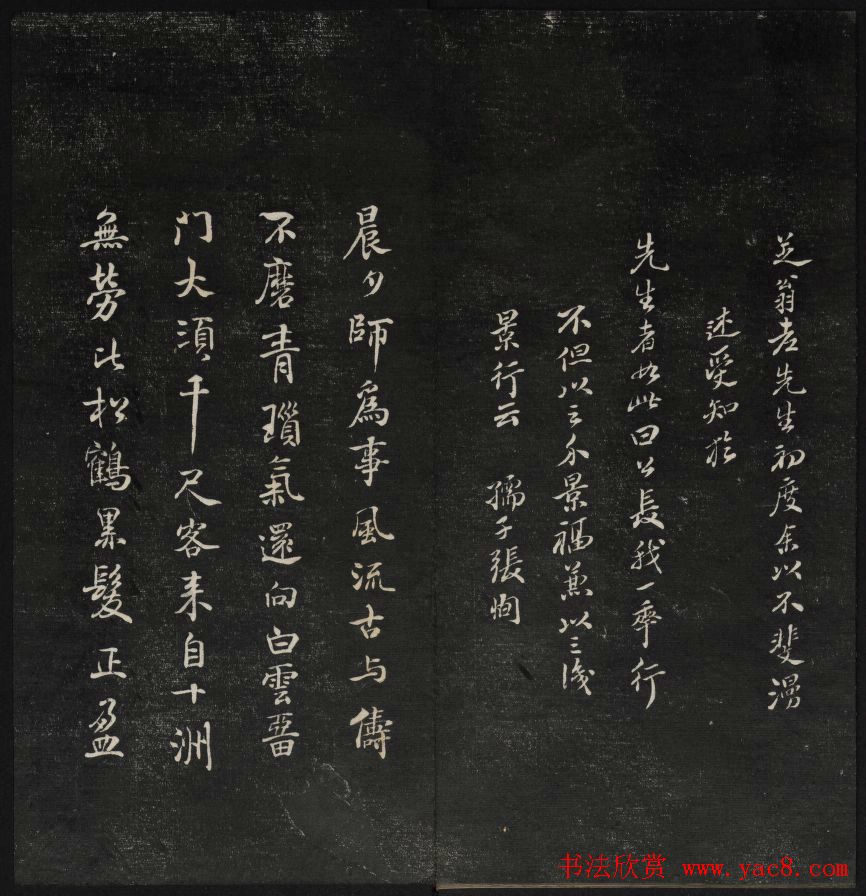 芝翁老先生初度余以不斐漫
述受知於
先生者如此曰公長我一率行
不但以之介景福兼以三浅
景行云 孺子張恂
晨夕師為事風流古与儔
不磨青瑣氣還向白雲畱
門大須千尺客来自十洲
無勞比松鶴黑髮正盈
书法欣赏 www.yac8.com